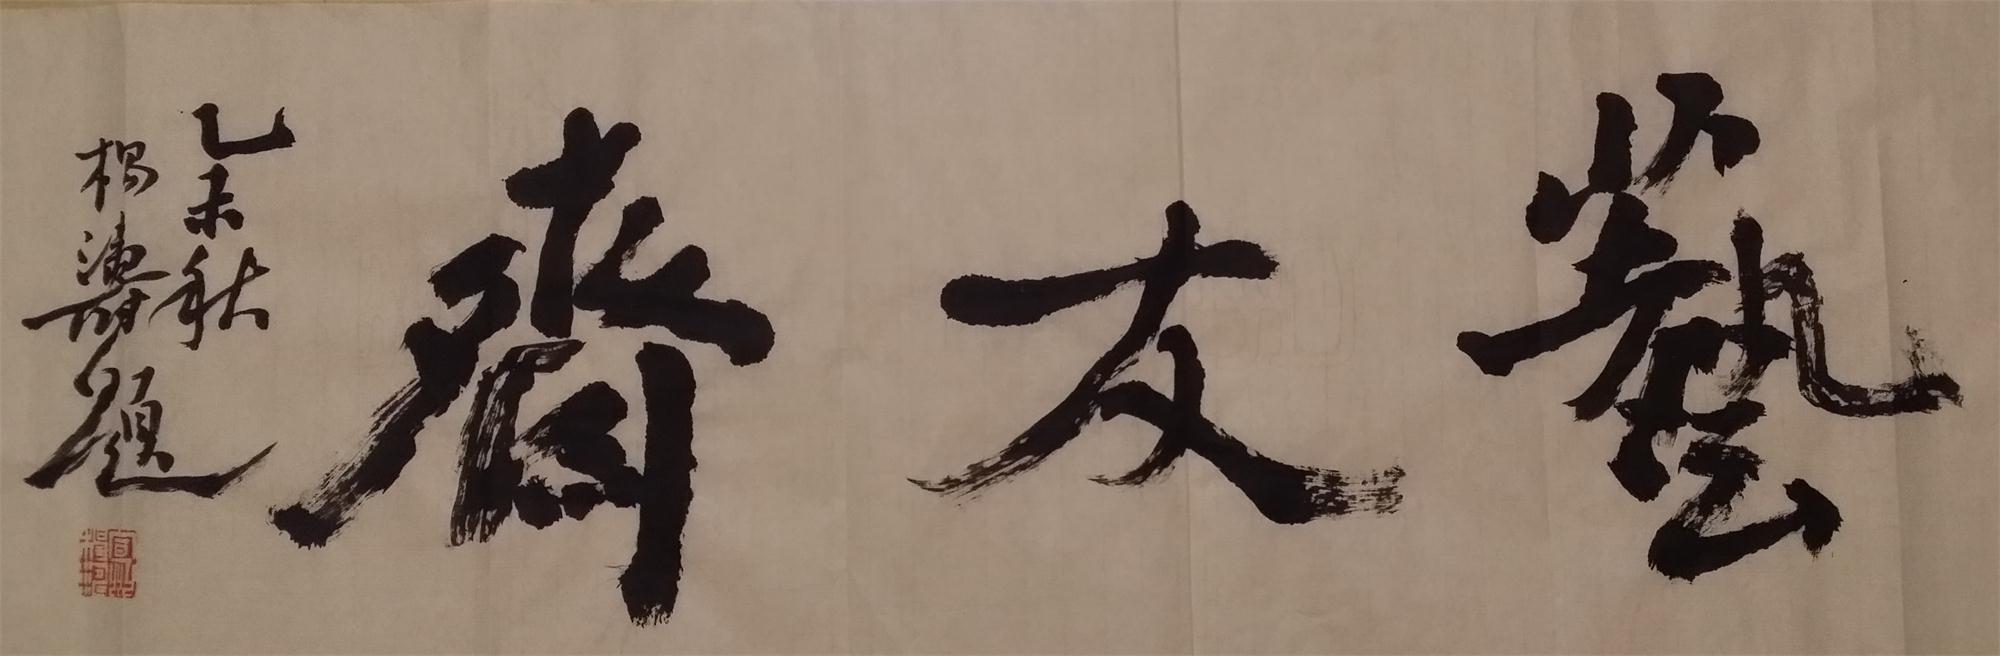 藝友齋
乙未秋
楊濤題